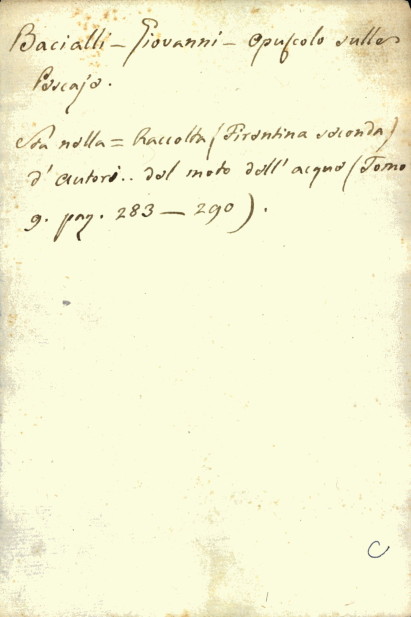 Bacialli - Giovanni - Opuscolo sulle
Pescaje.
Sta nella = Raccolta (Fiorentina seconda)
d'autori.. del moto dell'acque (Tomo
9. pag. 283 — 290).
C